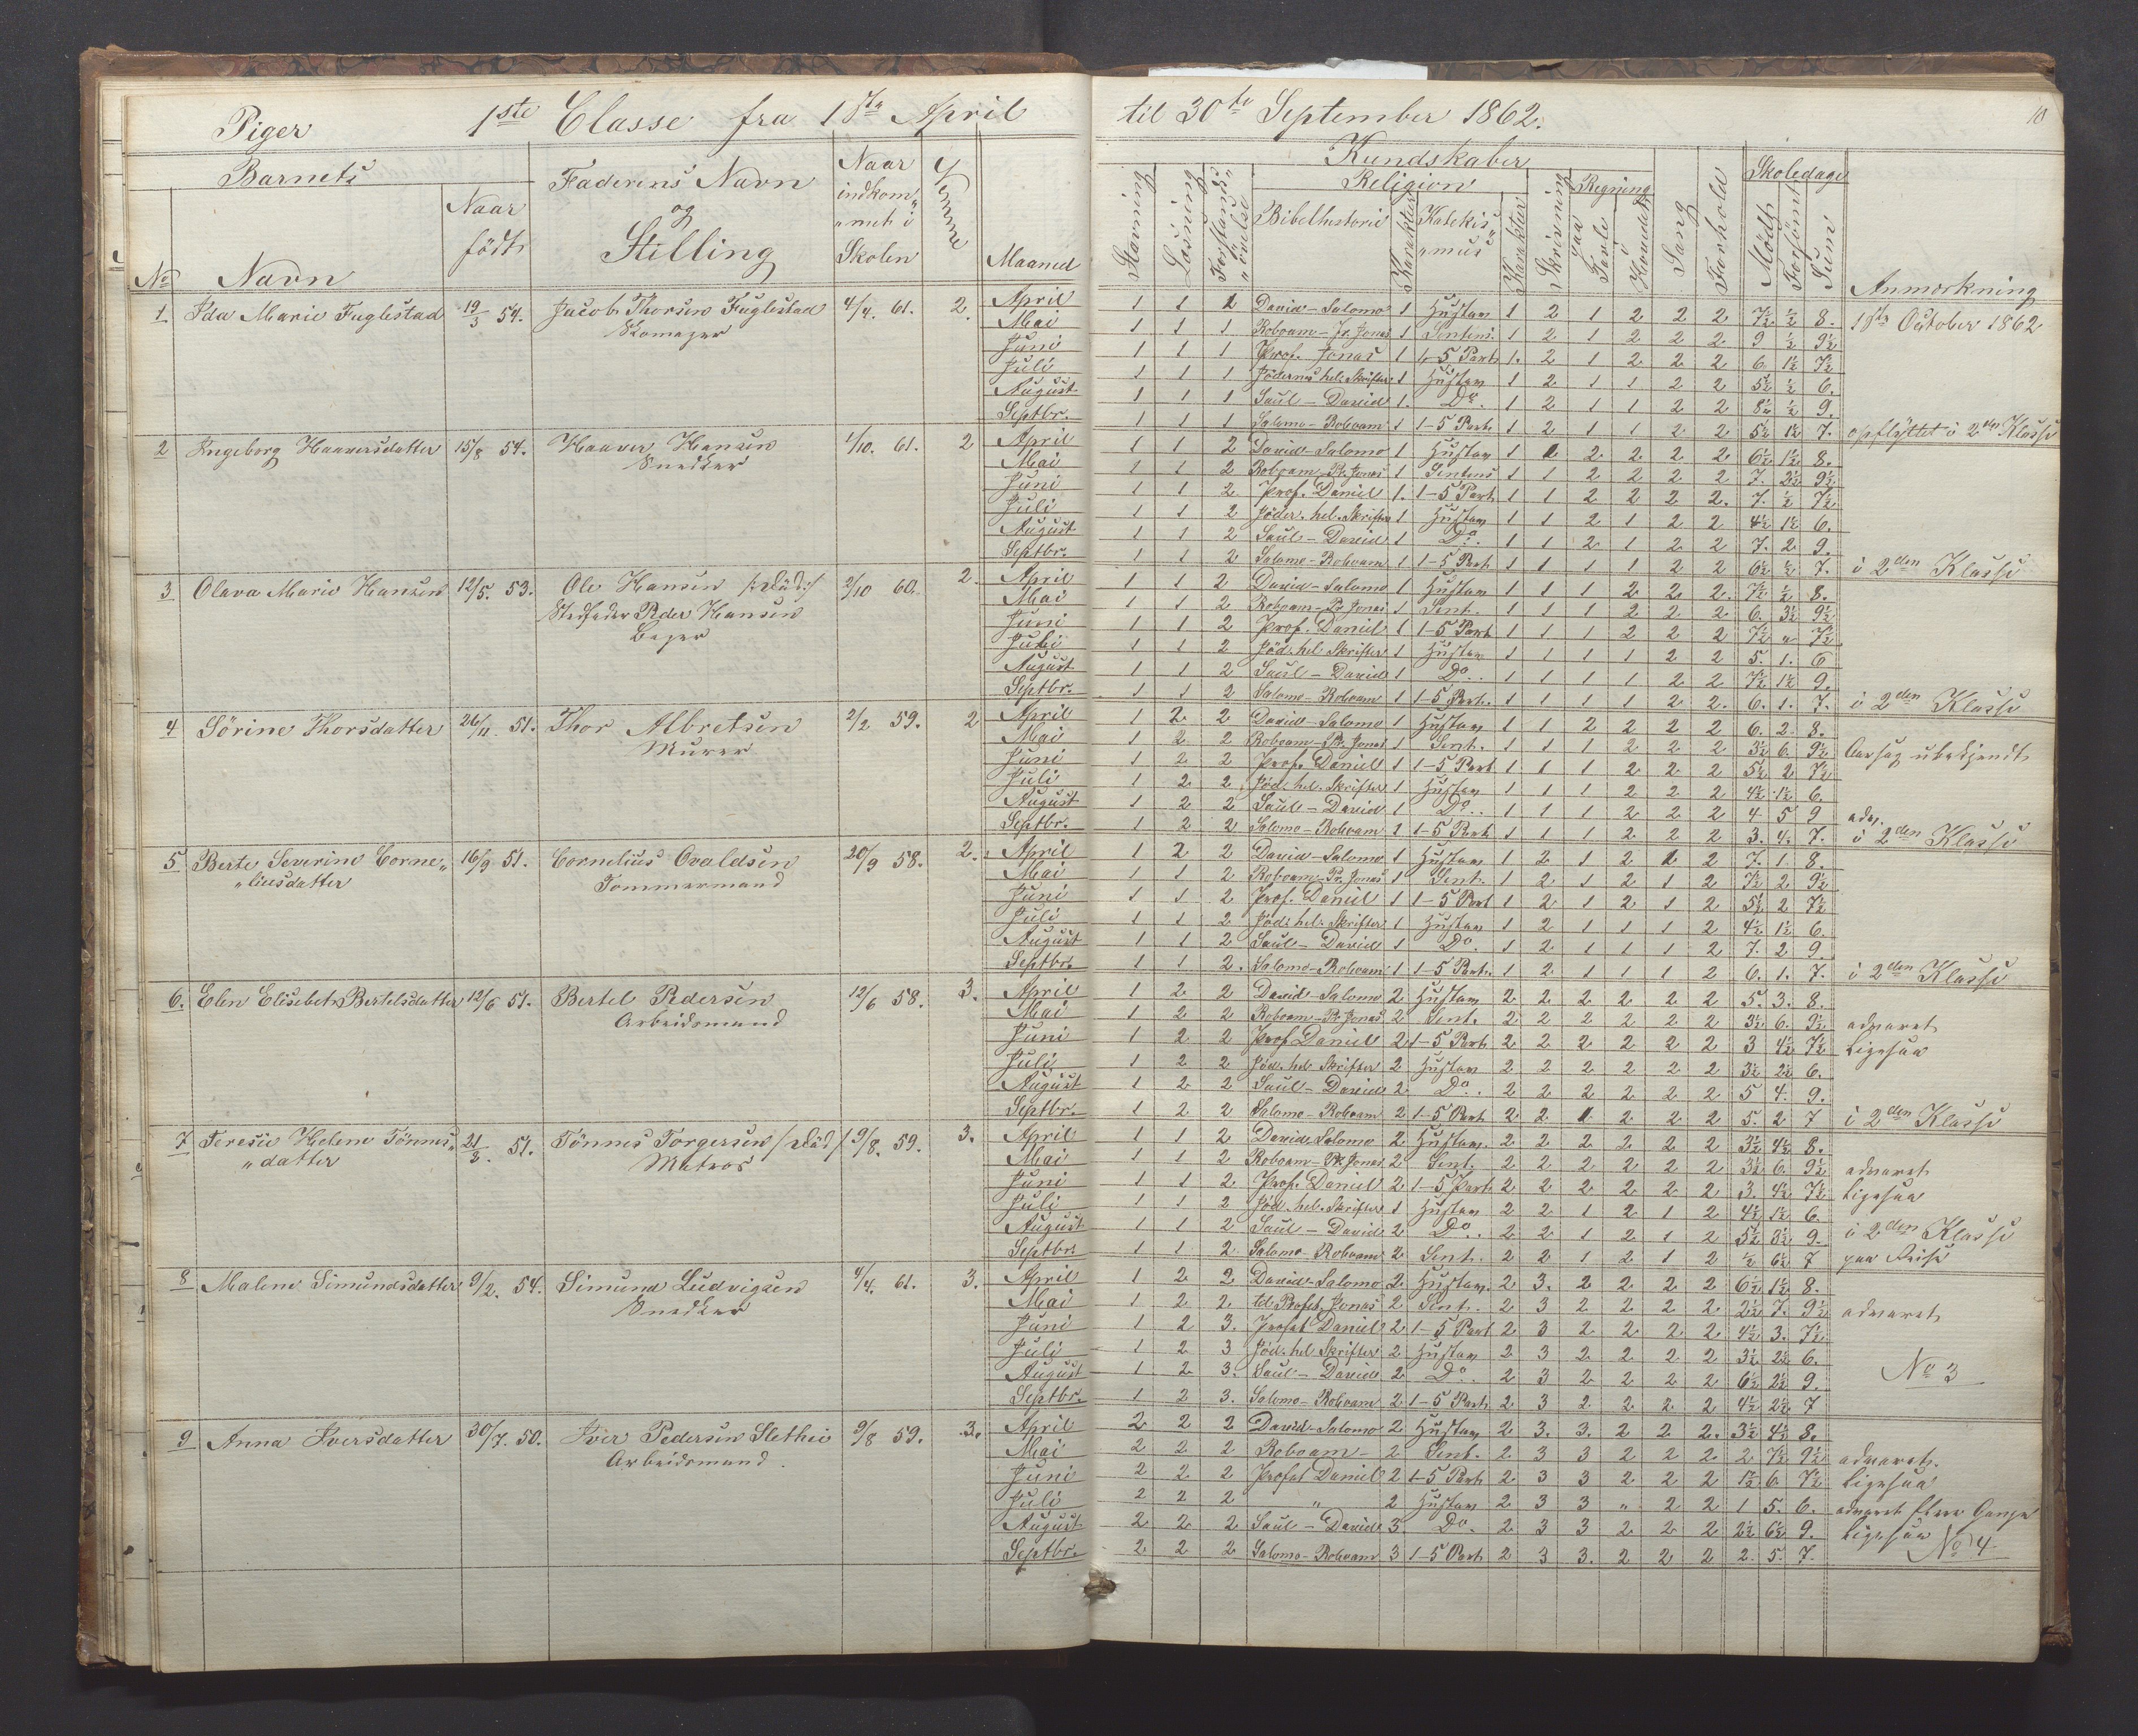 Piger 1ste Classe fra 1ste April til 30te September 1862. 10
Barnets
Faderens Navn og Stilling
Naar indkommet i Skolen
Evnne
Maaned
Stavning
Læsning
Forstandsøvelse
Kundskaber
Religion
Bibelhistorie
Karakter
Katekismus
Karakter
Skrivning
Regning
paa Tavle
i Hovedet
Sang
Forhold
Skoledage
Mödt
Forsömt
Sum
Anmærkning
No Navn Naar født
1 Ida Marie Fuglestad 19/3 54. Jacob Thorsen Fuglestad 4/4. 61. 2. April 1 1 2 David-Salomo 1 Hustav 1 2 1 2 2 2 7½ ½ 8. 1ste October 1862
Skomager Mai 1 1 1 Roboam-Pr. Jonas 1 Sentens. 1 2 1 2 2 2. 9 ½ 9½
Juni 1 1 1 Prof. Jonas 1 1-5 Part. 1. 2 1 2 2 2 6. 1½ 7½
Juli 1 1 1 Jödernes hel. Skrifter 1 Hustav 1 2 1 1 2 2 5½ ½ 6.
August 1 1 1 Saul-David 1. Do. 1 2 1 1 2 2 8½ ½ 9.
Septbr. 1 1 1 Salomo-Roboam 1 1-5 Part. 1 2 1 1 2 2 5½ 1½ 7. opflyttet i 2den Klasse
2 Ingeborg Haaversdatter 15/8 54. Haaver Hansen 1/10. 61. 2 April 1 1 2 David-Salomo 1 Hustav 1 1 2 2. 2 2. 6½ 1½ 8.
Snedker Mai 1 1 2 Roboam-Pr. Jonas 1 Sentens 1 1 2 2 2 2 7. 2½ 9½
Juni 1 1 2 Prof. Daniel 1. 1-5 Part. 1 1 2 2 2 2. 7. ½ 7½
Juli 1 1 2 Jöder. hel. Skrifter 1 Hustav 1 1 2 1 2 2 4½ 1½ 6.
August 1 1 2 Saul-David 1 Do. 1 1 2 1 2 2 7. 2 9.
Septbr. 1 1 2 Salomo-Roboam 1 1-5 Part 1 1 1 1 2 2 6½ ½ 7. i 2den Klasse
3 Olava Marie Hansen 12/5. 53. Ole Hansen /:död:/ 2/10 60. 2. April 1 1 2 David-Salomo 1 Hustav 1 1 1 2 2 2. 7½ ½ 8.
Stedfader Peder Hansen Mai 1 1 2 Roboam-Pr. Jonas 1 Sent. 1 1 1 2 2 2 6. 3½ 9½
Bager Juni 1 1 2 Prof. Daniel 1 1-5 Part 1 1 1 2 2 2 7½ " 7½
Juli 1 1 2 Jöd. hel. Skrifter 1 Hustav 1 1 1 1 2 2 5. 1. 6
August 1 1 2 Saul-David 1 Do. 1 1 1 1 2 2 7½ 1½ 9.
Septbr. 1 1 2 Salomo-Roboam 1 1-5 Part. 1 1 1 1 2 2. 6. 1. 7. i 2den Klasse
4 Sörine Thorsdatter 26/11. 51. Thor Albretsen 2/2 59. 2 April 1 2 2 David-Salomo 1 Hustav 1 1 2 2 2 2 6. 2. 8.
Murer Mai 1 2 2 Roboam-Pr. Jonas 1 Sent. 1 1 1 2 2 2 3½ 6. 9½ Aarsag ubekjendt
Juni 1 2 2 Prof. Daniel 1 1-5 Part 1 1 1 2 2 2 5½ 2 7½
Juli 1 2 2 Jöd. hel. Skrifter 1 Hustav 1 1 1 2 2 2 4½ 1½ 6.
August 1 2 2 Saul-David 1 Do. 1 1 1 2 2 2 4 5 9 adv.
Septbr. 1 2 2 Salomo-Roboam 1 1-5 Part. 1 1 1 2 2 2 3. 4. 7. i 2den Klasse
5 Berte Severine Corne- 16/9 51. Cornelius Ovaldsen 20/9 58. 2. April 1 2 2 David-Salomo 1 Hustav 1 2 1 2 1 2 7. 1. 8.
liusdatter Tømmermand Mai 1 1 2 Roboam-Pr. Jonas 1 Sent. 1 2 1 2 1 2 7½ 2 9½
Juni 1 1 2 Prof. Daniel 1 1-5 Part 1 2 1 2 1 2 5½ 2 7½
Juli 1 1 2 Jöd. hel. Skrifter 1 Hustav 1 2 1 1 1 2 4½ 1½ 6.
August 1 1 2 Saul-David 1 Do. 1 2 1 1 1 2 7. 2 9.
Septbr. 1 1 2. Salomo-Roboam 1 1-5 Part. 1 2 1 1 1 2 6. 1. 7. i 2den Klasse
6. Elen Elisebet Bertelsdatter 12/6 51. Bertel Pedersen 12/6 58. 3. April 1 2 2 David-Salomo 2 Hustav 2 2 2 2 2 2 5. 3. 8.
Arbeidsmand Mai 1 2 2 Roboam-Pr. Jonas 2 Sent. 2 2 2 2 2 2 3½ 6. 9½ advaret
Juni 1 2 2 Prof Daniel 2 1-5 Part 2 2 2 2 2 2 3 4½ 7½ Ligesaa
Juli 1 2 2 Jöd. hel Skrifter 2 Hustav 2 2 2 2 2 2 3½ 2½ 6.
August 1 2 2 Saul-David 2 Do. 2 2 2 2 2 2 5 4. 9.
Septbr. 1 2 2 Salomo-Roboam 2 1-5 Part 2 2 1 2 2 2 5. 2 7 i 2den Klasse
7 Teresie Helene Tönnes- 21/3. 51. Tönnes Torgersen /död/ 9/8. 59. 3. April 1 1 2 David Salomo 2 Hustav. 2 2 2 2 2 2 3½ 4½ 8.
datter Matros Mai 1 1 2 Roboam-Pr. Jonas 2 Sent. 2 2 2 2 2 2 3½ 6. 9½ advaret
Juni 1 1 2 Prof. Daniel 2 1-5 Part. 2 2 2 2 2 2 3. 4½ 7½ Ligesaa
Juli 1 1 2 Jöd. hel. Skrifter 1 Hustav 2 2 1 2 1 2 4½ 1½ 6.
August 1 1 2 Saul-David 2 Do. 2 2 1 2 1 2 5½ 3½ 9. i 2den Klasse
Septbr. 1 1 2 Salomo-Roboam 2 Sent. 2 2 1 2 1 2 ½ 6½ 7 paa Reise
8 Malene Simundsdatter 9/2. 54. Simund Ludvigsen 4/4. 61. 3. April 1 2 2 David-Salomo 2 Hustav. 2 3. 2 2 2 2 6½ 1½ 8.
Snedker Mai 1 2 2. til Profet. Jonas 2 Sent. 2 3 2 2 2 2. 2½ 7. 9½ advaret
Juni 1 2 3. Profet Daniel 2 1-5 Part 2 3 2 2. 2 2. 4½ 3. 7½
Juli 1 2 3 Jöd. hel Skrifter 2 Hustav 2 3 2 2 2 2 3½ 2½ 6.
August 1 2 3. Saul-David 2 Do. 2 3 2 2 2 2 6½ 2½ 9. No 3
Septbr. 1 2 3. Salomo-Roboam 2 1-5 Part 2 3 2 2 2 2 4½ 2½ 7
9 Anna Iversdatter 30/7. 50. Iver Pedersen Slethei 9/8 59. 3. April 2 2 2 David-Salomo 2 Hustav 2 3. 3. 2 2 2. 3½ 4½ 8.
Arbeidsmand. Mai 2 2 2 Roboam- 2 Sent. 2 3 3 2 2 2. 2 7½ 9½ advaret.
Juni 2 2 2 Profet Daniel 2 1-5 Part 2 3 3 2 2 2 1½ 6. 7½ Ligesaa
Juli 2 2 2 " 2 Hustav 2 3 3 " 2 2 1 5. 6. advaret flere Gange
August 2 2 2 Saul-David 3. Do. 2 3 3 2 2 2 2½ 6½ 9. Ligesaa
Septbr. 2 2 2 Salomo-Roboam 3 1-5 Part 2 3 3. 2 2 2 2. 5. 7. No 4.